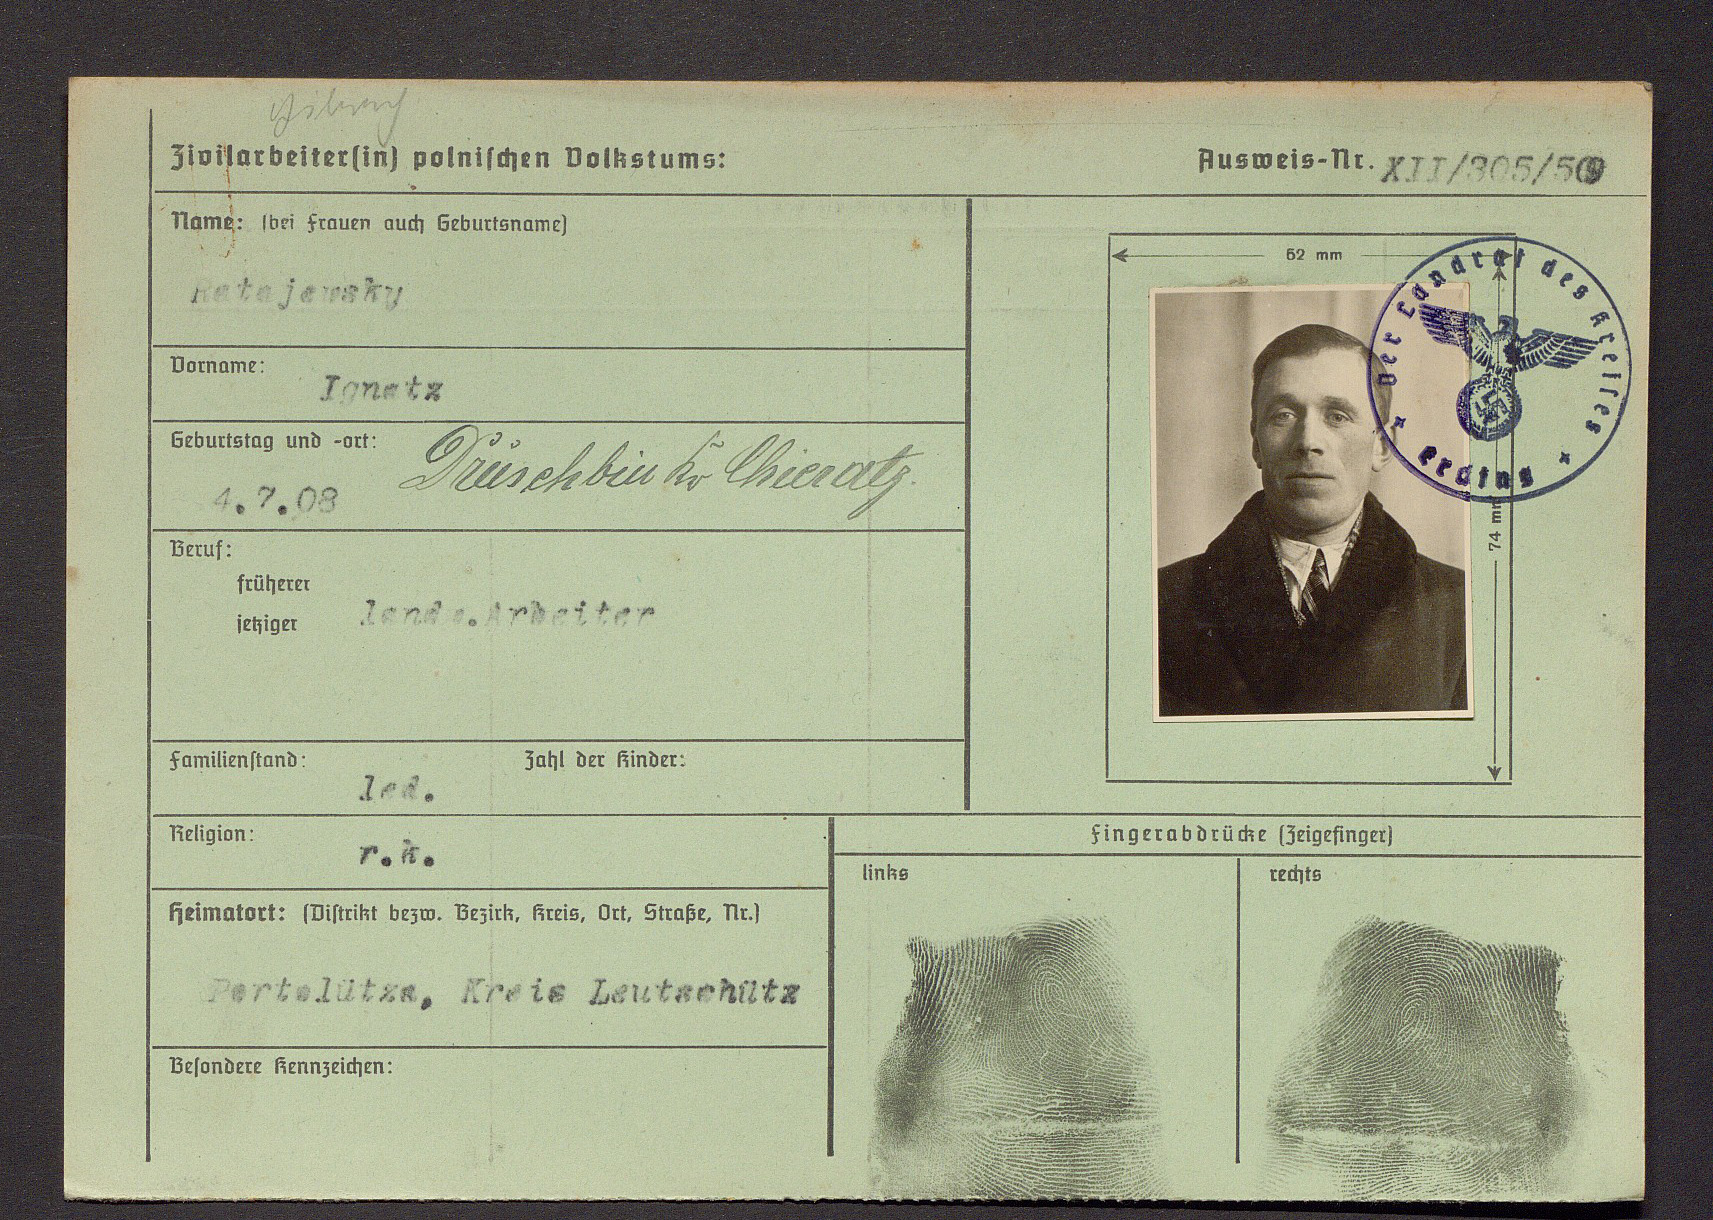 Zivilarbeiter(in) polnischen Volkstums:
Ausweis-Nr. XII/305/59
Name: (bei Frauen auch Geburtsname)
Ratajewsky
Vorname:
Ignatz
Geburtstag und -ort:
Drüschbin Kr Chieratz.
4.7.08
Beruf:
früherer
jetziger
landw.Arbeiter
Familienstand:
led.
Zahl der Kinder:
Religion:
r.k.
Heimatort: (Distrikt bezw. Bezirk, Kreis, Ort, Straße, Nr.)
Portolütza, Kreis Leutschütz
Besondere Kennzeichen:
52 mm
74 mm
Der Landrat des Kreises
Erding
Fingerabdrücke (Zeigefinger)
links
rechts